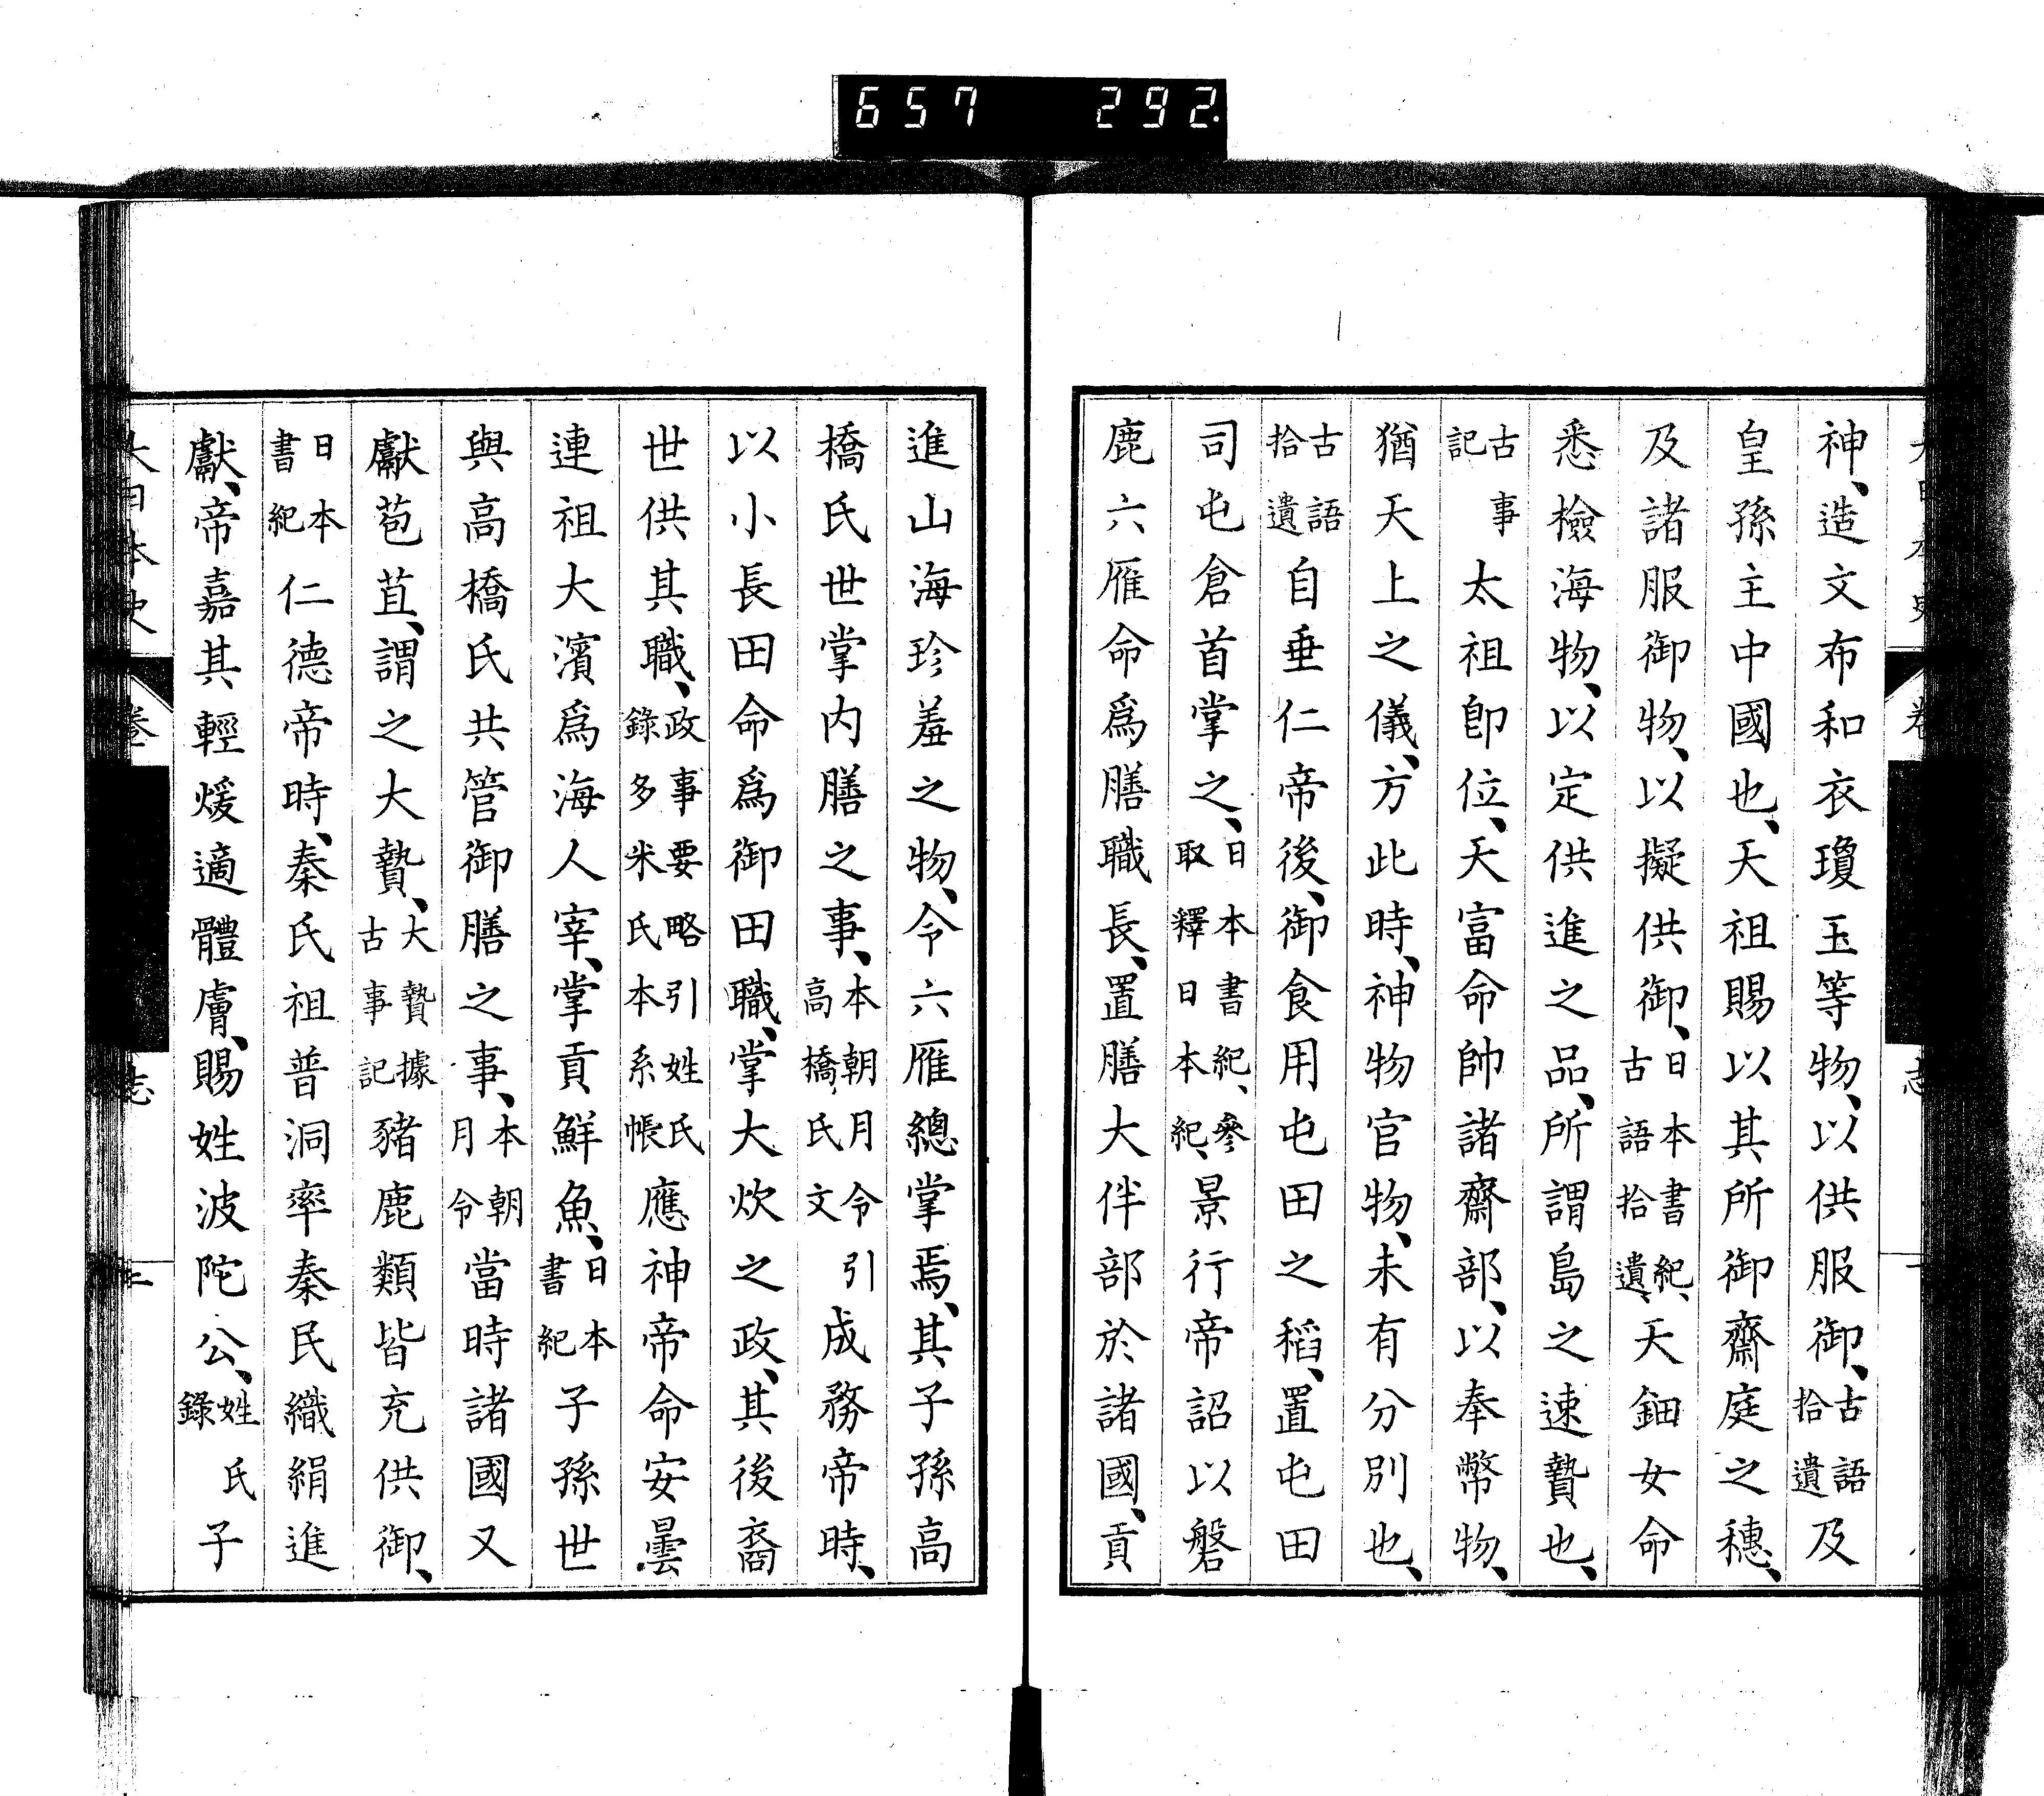 657 292.
神、造文布和衣瓊玉等物、以供服御、古語拾遺及
皇孫主中國也、天祖賜以其所御齋庭之穗、
及諸服御物、以擬供御、日本書紀、古語拾遺、天鈿女命
悉檢海物、以定供進之品、所謂島之速贄也、
古事記太祖卽位、天富命帥諸齋部、以奉幣物、
猶天上之儀、方此時、神物官物、未有分別也、
古語拾遺自垂仁帝後、御食用屯田之稻、置屯田
司屯倉首掌之、日本書紀、參取釋日本紀、景行帝詔以磐
鹿六雁命爲膳職長、置膳大伴部於諸國、貢
進山海珍羞之物、令六雁總掌焉、其子孫高
橋氏世掌内膳之事、本朝月令引高橋氏文成務帝時、
以小長田命爲御田職、掌大炊之政、其後裔
世供其職、政事要略引姓氏錄多米氏本系帳應神帝命安曇
連祖大濱爲海人宰、掌貢鮮魚、日本書紀子孫世
與高橋氏共管御膳之事、本朝月令當時諸國又
獻苞苴、謂之大贄、大贄據古事記豬鹿類皆充供御、
日本書紀仁德帝時、秦氏祖普洞率秦民織絹進
獻、帝嘉其輕煖適體膚、賜姓波陀公、姓氏錄子
大日本史 卷 志